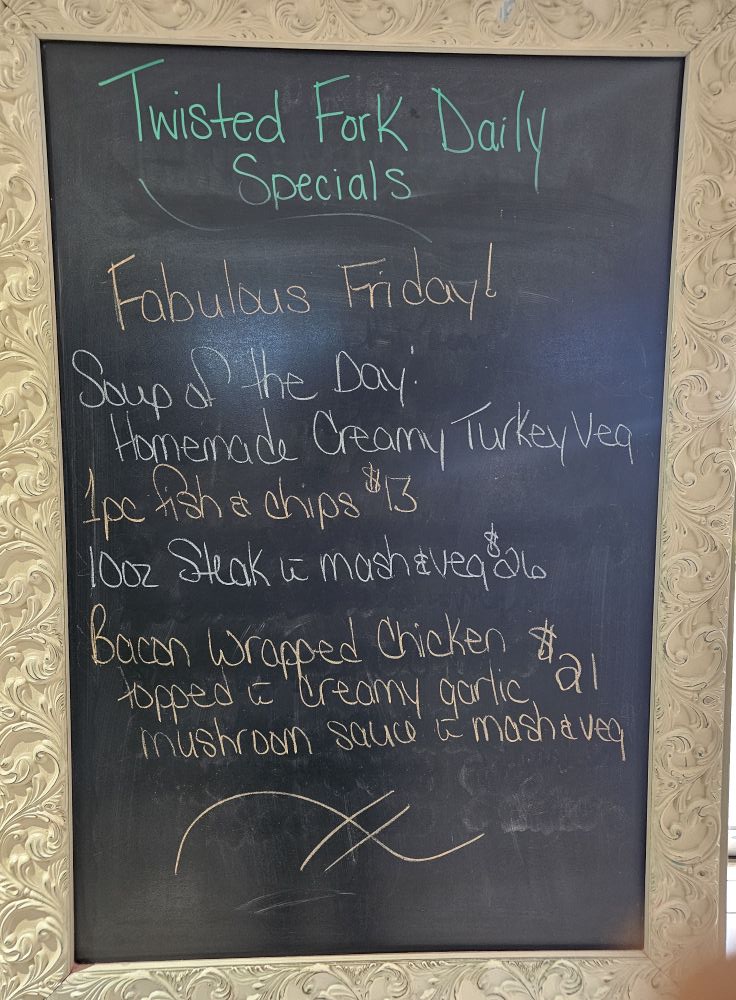 Twisted Fork Daily
Specials
Fabulous Friday!
Soup of the Day:
Homemade Creamy Turkey Veg
1pc fish & chips $13
10oz Steak c̄ mash & veg $26
Bacon Wrapped Chicken $21
topped c̄ creamy garlic
mushroom sauce c̄ mash & veg